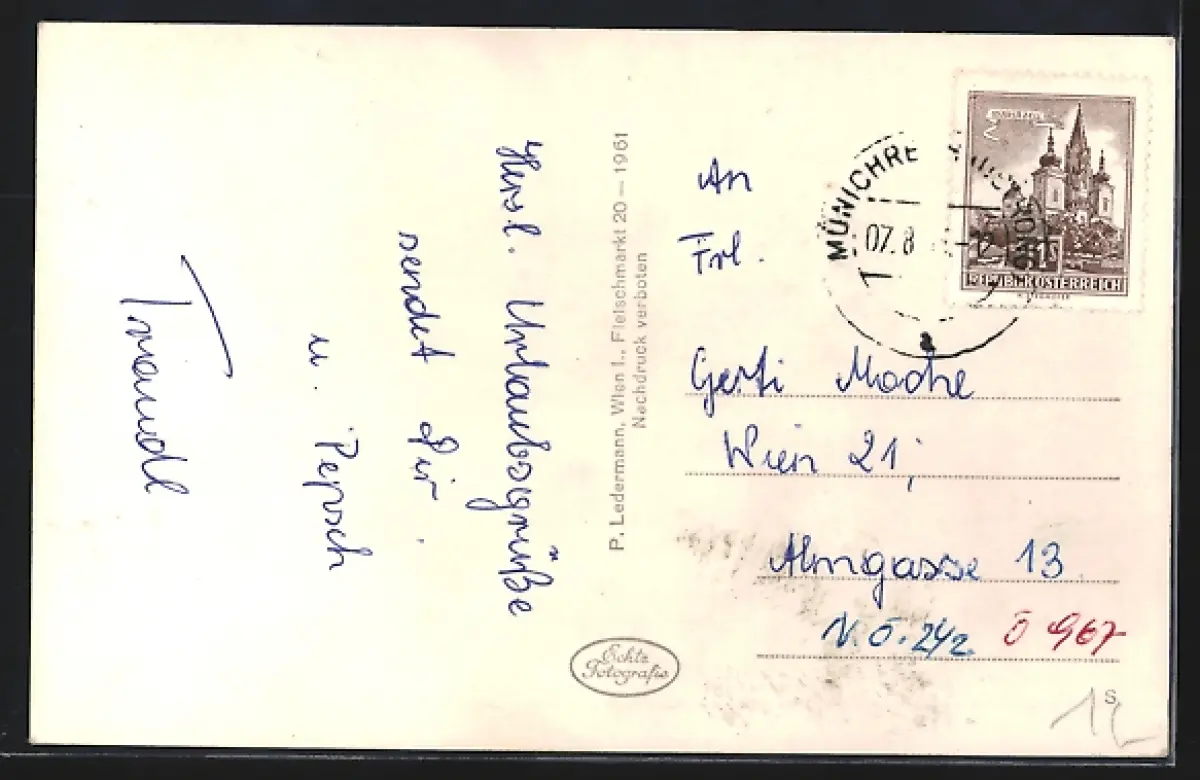 Herzl. Urlaubsgrüße
sendet dir
u. Pepsch
Traudl
P. Ledermann, Wien I., Fleischmarkt 20 — 1961
Nachdruck verboten
Echte
Fotografie
An
Frl.
Gerti Mache
Wien 21,
Almgasse 13
N.Ö. 242 Ö 967
S
MÜNICHRE
07.8
REPUBLIK ÖSTERREICH